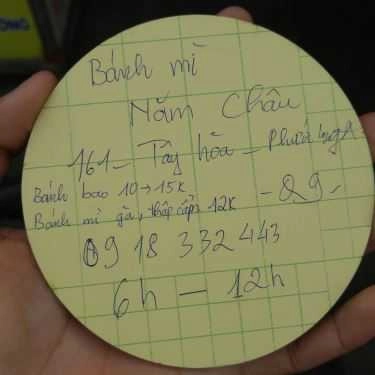 ONG
Bánh mì
Năm Châu
161 - Tây hòa - Phước long A
Bánh bao 10 → 15K - Q9 -
Bánh mì gà, thập cẩm 12K
0918 332 443
6h - 12h